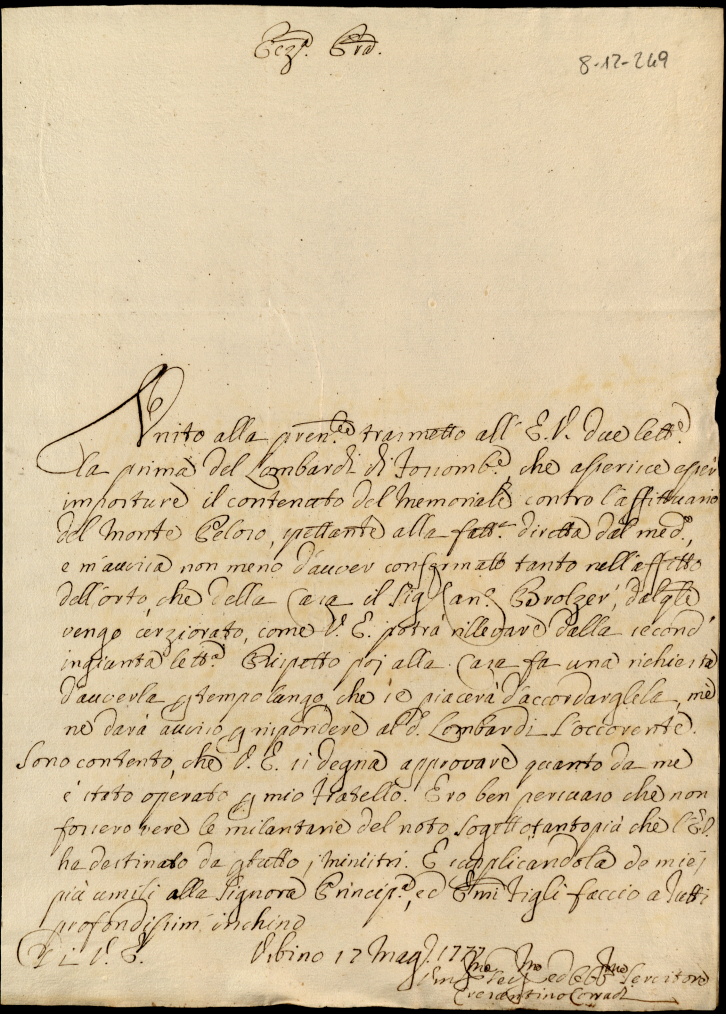 Ecz.ª Prã.
8-12-249
Unito alla pren.te trasmetto all' E. V. due lett.e
la prima del Lombardi di Fossomb.e, che asserisce esser
imposture il contenuto del Memoriale contro l'affittuario
del Monte Peloso, spettante alla fatt.a diretta dal med.o,
e m'avvisa non meno d'auver confermato tanto nell'affitto
dell'orto, che della Casa il Sig. Can.o Brolzer, dal qle
vengo cerziorato, come V. E. potrà rillevare dalla second'
ingiunta lett.a Rispetto poi alla Casa fa una richiesta
d'auverla p tempo lungo, che se piacerà d'accordarglela, me
ne darà avviso p rispondere al d.o Lombardi l'occorente.
Sono contento, che V. E. si degna approvare quanto da me
è stato operato p mio Fratello. Ero ben persuaso che non
fossero vere le milantarie del noto Sogetto tanto più che l'E.V.
ha destinato da p tutto i Ministri. E supplicandola de miei
più umili alla Signora Princip.a, ed Ecc.mi Figli faccio a tutti
profondissim' inchino
Di V. E. Urbino 17 Mag. 1777
Um.mo Dev.mo ed Obb.mo Servitore
Crescentino Corradi